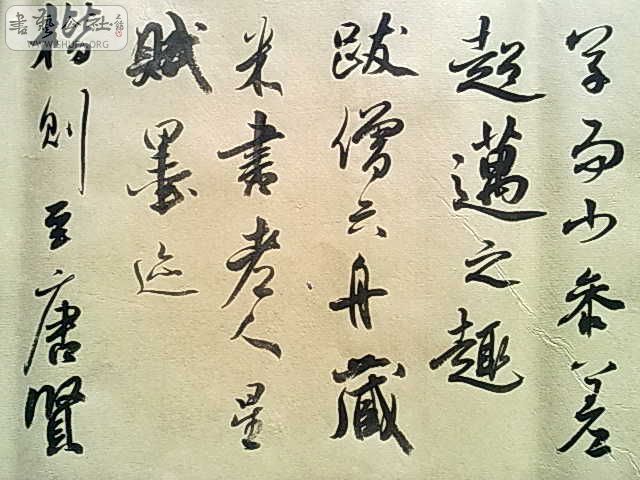 字而少參差
超邁之趣
跋僧六舟藏
米書老人星
賦墨迹
楷則至唐賢
書藝公社
WWW.SHUFA.ORG